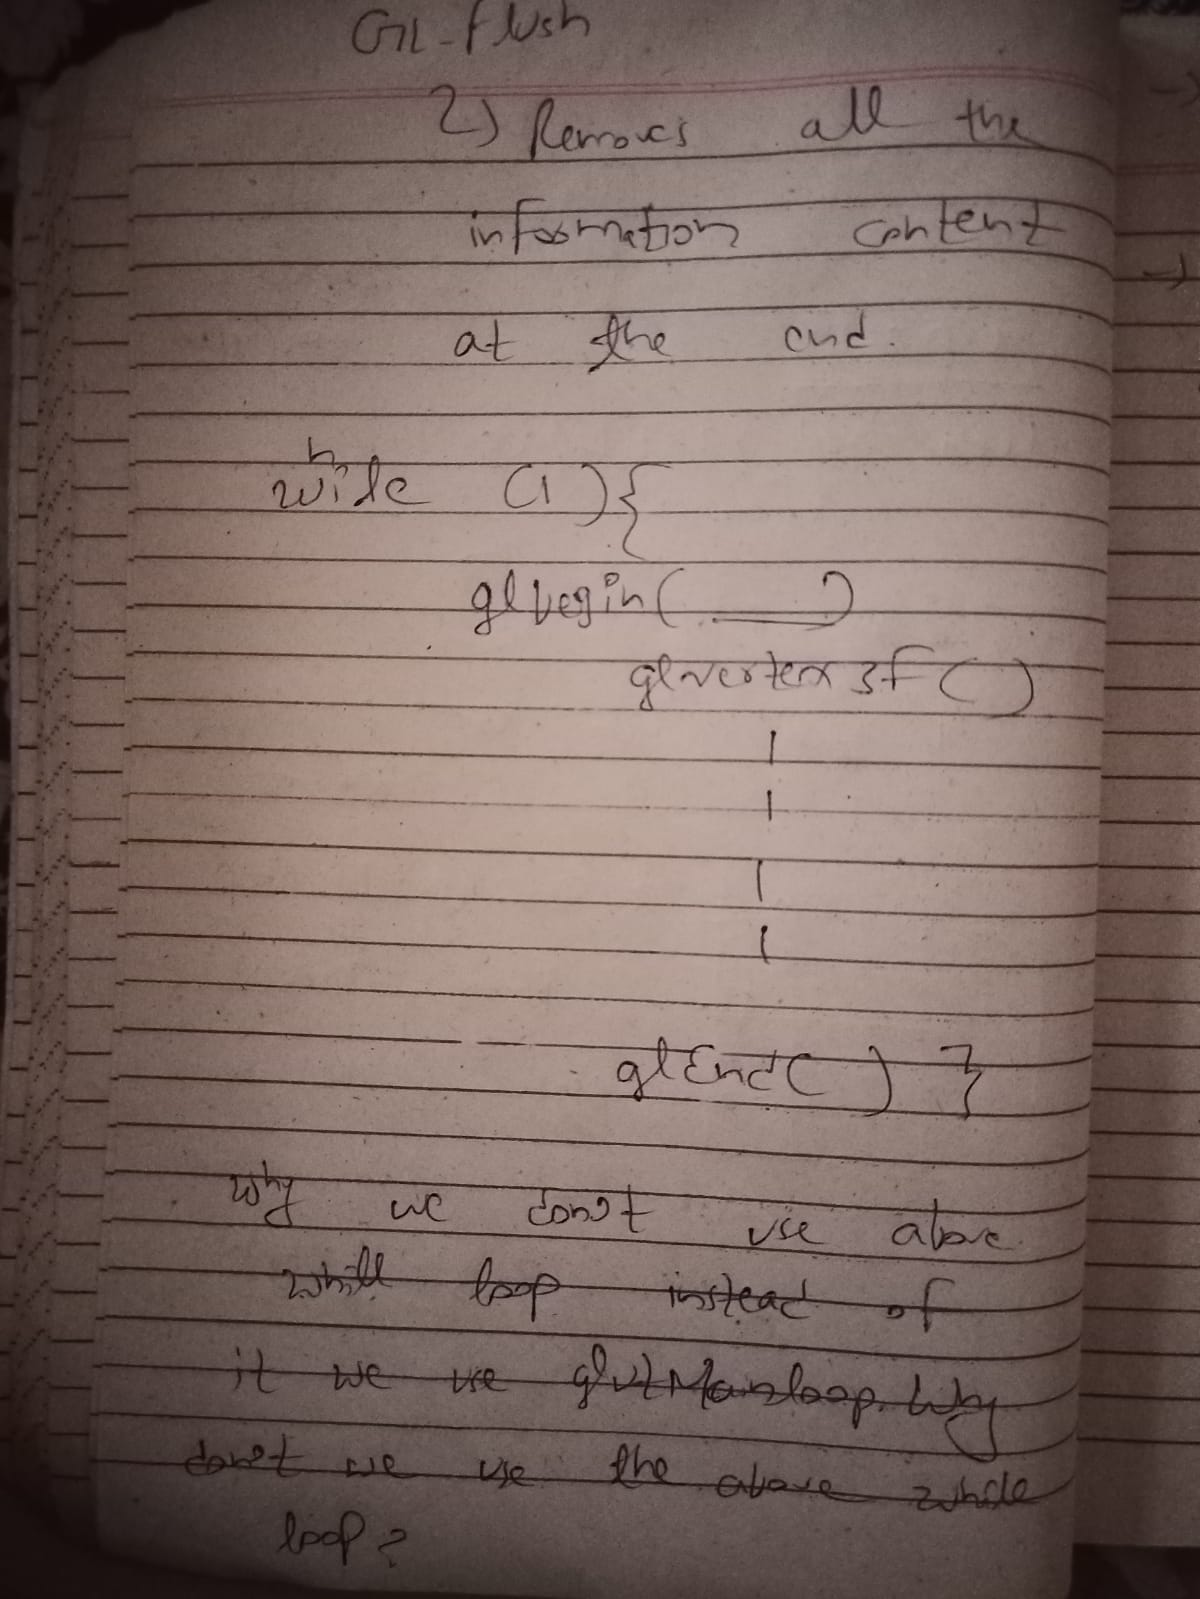 GL-flush
2) Removes all the
information content
at the end.
while (1){
glbegin( ___ )
glvertex3f( )
glEnd( ) }
why we don't use above
whill loop instead of
it we use glutMainloop. Why
don't we use the above while
loop?